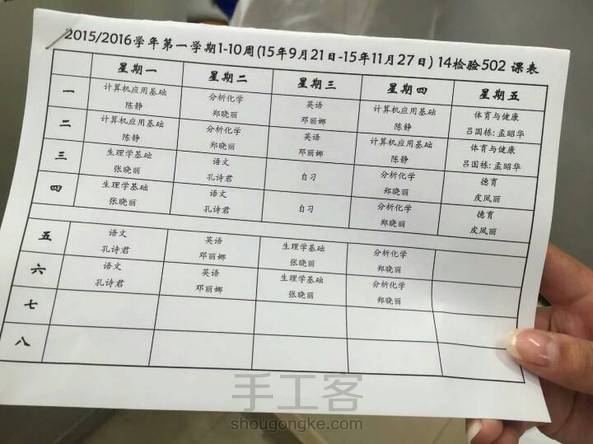 2015/2016学年第一学期1-10周(15年9月21日-15年11月27日) 14检验502 课表
星期一 星期二 星期三 星期四 星期五
一 计算机应用基础 分析化学 英语 计算机应用基础 体育与健康
陈静 郑晓丽 邓丽娜 陈静 吕国栋:孟昭华
二 计算机应用基础 分析化学 英语 计算机应用基础 体育与健康
陈静 郑晓丽 邓丽娜 陈静 吕国栋:孟昭华
三 生理学基础 语文 自习 分析化学 德育
张晓丽 孔诗君 郑晓丽 皮凤丽
四 生理学基础 语文 自习 分析化学 德育
张晓丽 孔诗君 郑晓丽 皮凤丽
五 语文 英语 生理学基础 分析化学
孔诗君 邓丽娜 张晓丽 郑晓丽
六 语文 英语 生理学基础 分析化学
孔诗君 邓丽娜 张晓丽 郑晓丽
七
八
手工客
shougongke.com